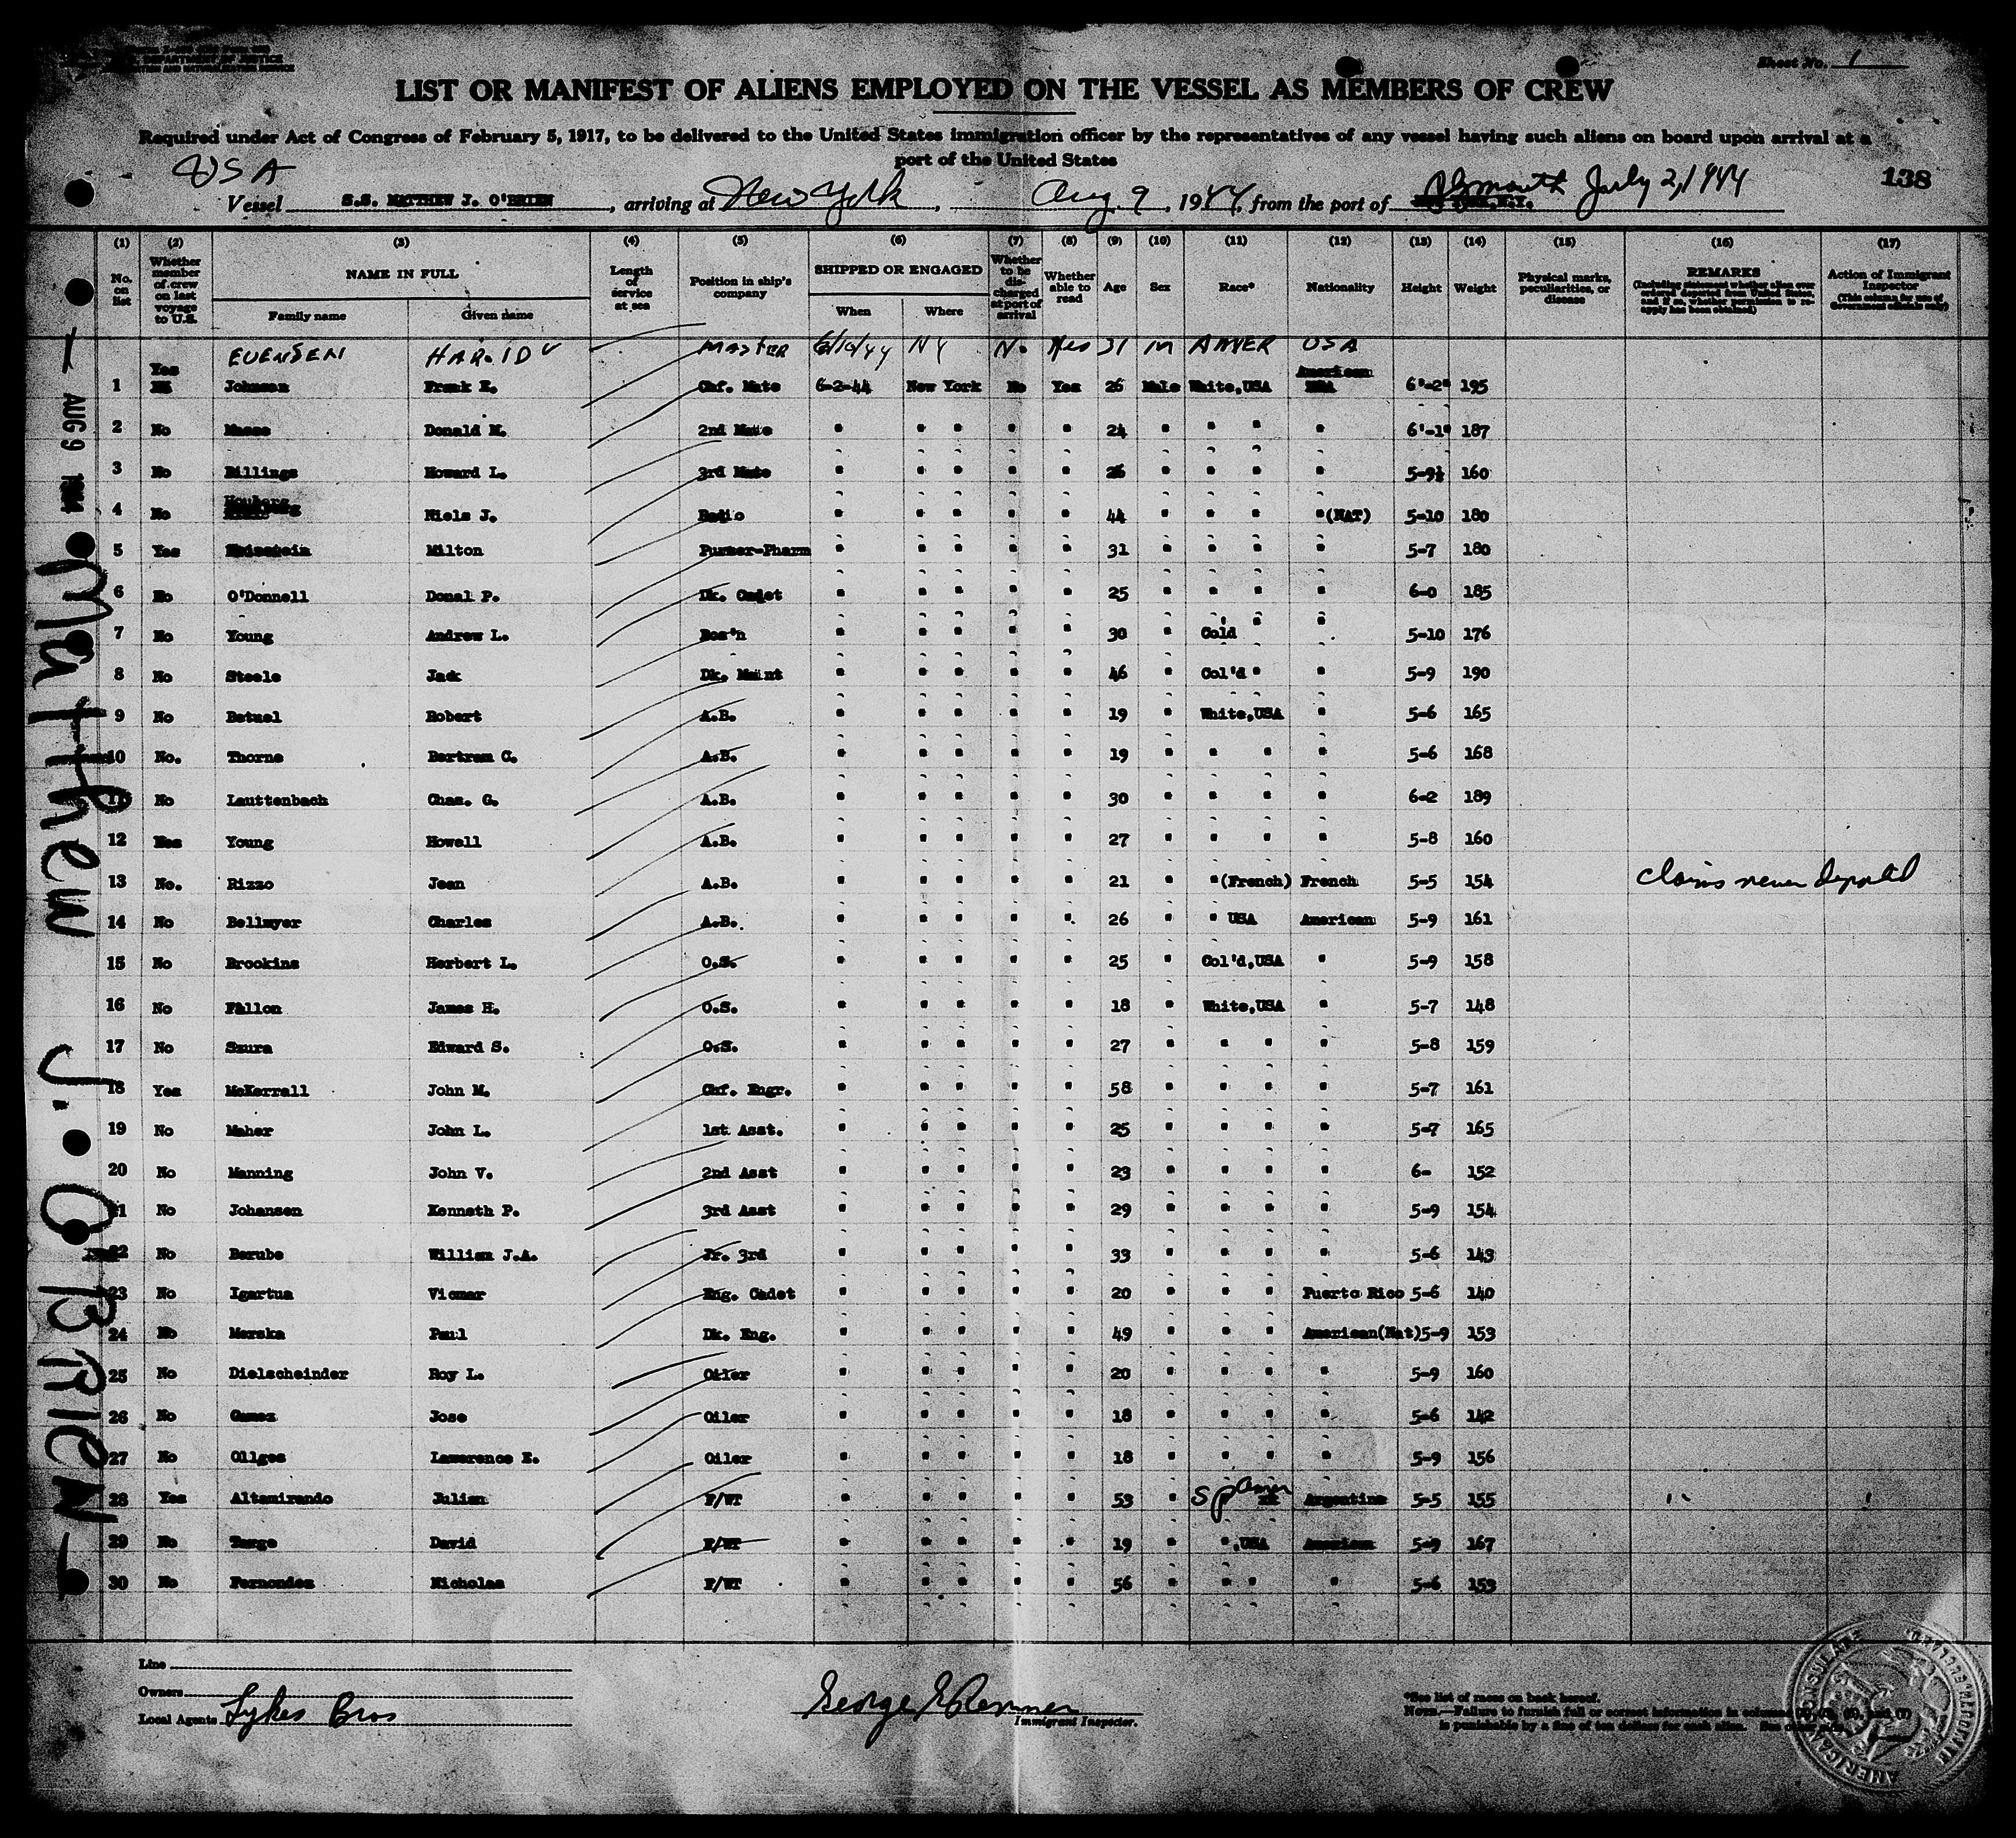 DEPARTMENT OF JUSTICE
IMMIGRATION AND NATURALIZATION SERVICE
Sheet No. 1
LIST OR MANIFEST OF ALIENS EMPLOYED ON THE VESSEL AS MEMBERS OF CREW
Required under Act of Congress of February 5, 1917, to be delivered to the United States immigration officer by the representatives of any vessel having such aliens on board upon arrival at a
port of the United States
USA
138
Vessel S.S. MATTHEW J. O'BRIEN, arriving at New York, Aug 9, 1944, from the port of Plymouth July 2, 1944
(1) (2) (3) (4) (5) (6) (7) (8) (9) (10) (11) (12) (13) (14) (15) (16) (17)
No. on list
Whether member of crew on last voyage to U.S.
NAME IN FULL
Family name Given name
Length of service at sea
Position in ship's company
SHIPPED OR ENGAGED
When Where
Whether to be discharged at port of arrival
Whether able to read
Age
Sex
Race*
Nationality
Height
Weight
Physical marks, peculiarities, or disease
REMARKS
(Including statement whether alien ever ordered deported from United States and if so, whether permission to reapply has been obtained)
Action of Immigrant Inspector
(This column for use of Government officials only)
EVENSEN HAROLD V MASTER 6/10/44 NY No Yes 31 M AMER USA
1 Yes Johnson Frank E. Chf. Mate 6-2-44 New York No Yes 26 Male White,USA American 6'-2" 195
2 No Donald M. 2nd Mate " " " " " 24 " " " " 6'-1" 187
3 No Billings Howard L. 3rd Mate " " " " " 26 " " " " 5-9½ 160
4 No Niels J. Radio " " " " " 44 " " " "(NAT) 5-10 180
5 Yes Milton Purser-Pharm " " " " " 31 " " " " 5-7 180
6 No O'Donnell Donal P. Dk. Cadet " " " " " 25 " " " " 6-0 185
7 No Young Andrew L. Bos'n " " " " " 30 " Cold " " 5-10 176
8 No Steele Jack Dk. Maint " " " " " 46 " Col'd " " 5-9 190
9 No Betuel Robert A.B. " " " " " 19 " White,USA " 5-6 165
10 No. Thorne Bertram C. A.B. " " " " " 19 " " " " 5-6 168
11 No Lauttenbach Chas. G. A.B. " " " " " 30 " " " " 6-2 189
12 Yes Young Howell A.B. " " " " " 27 " " " " 5-8 160
13 No. Rizzo Jean A.B. " " " " " 21 " "(French) French 5-5 154 claims never deported
14 No Bellmyer Charles A.B. " " " " " 26 " " USA American 5-9 161
15 No Brookins Herbert L. O.S. " " " " " 25 " Col'd,USA " 5-9 158
16 No Fallon James H. O.S. " " " " " 18 " White,USA " 5-7 148
17 No Szura Edward S. O.S. " " " " " 27 " " " " 5-8 159
18 Yes McKerrall John M. Chf. Engr. " " " " " 58 " " " " 5-7 161
19 No Maher John L. 1st Asst. " " " " " 25 " " " " 5-7 165
20 No Manning John V. 2nd Asst " " " " " 23 " " " " 6- 152
21 No Johansen Kenneth P. 3rd Asst " " " " " 29 " " " " 5-9 154
22 No Berube William J.A. Jr. 3rd " " " " " 33 " " " " 5-6 143
23 No Igartua Vicmar Eng. Cadet " " " " " 20 " " " Puerto Rico 5-6 140
24 No Merska Paul Dk. Eng. " " " " " 49 " " " American(Nat) 5-9 153
25 No Dielscheinder Roy L. Oiler " " " " " 20 " " " " 5-9 160
26 No Gamez Jose Oiler " " " " " 18 " " " " 5-6 142
27 No Ollges Lawerence E. Oiler " " " " " 18 " " " " 5-9 156
28 Yes Altamirando Julian F/WT " " " " " 53 " Sp Amer Argentine 5-5 155 " "
29 No Targe David F/WT " " " " " 19 " ",USA American 5-9 167
30 No Fernondez Nicholas F/WT " " " " " 56 " " " " 5-6 153
AUG 9 1944
Matthew J. O'BRIEN
Line
Owners
Local Agents Lykes Bros
George E Renner
Immigrant Inspector.
*See list of races on back hereof.
NOTE.—Failure to furnish full or correct information in columns
is punishable by a fine of ten dollars for each alien.
AMERICAN CONSULATE
PLYMOUTH, ENGLAND